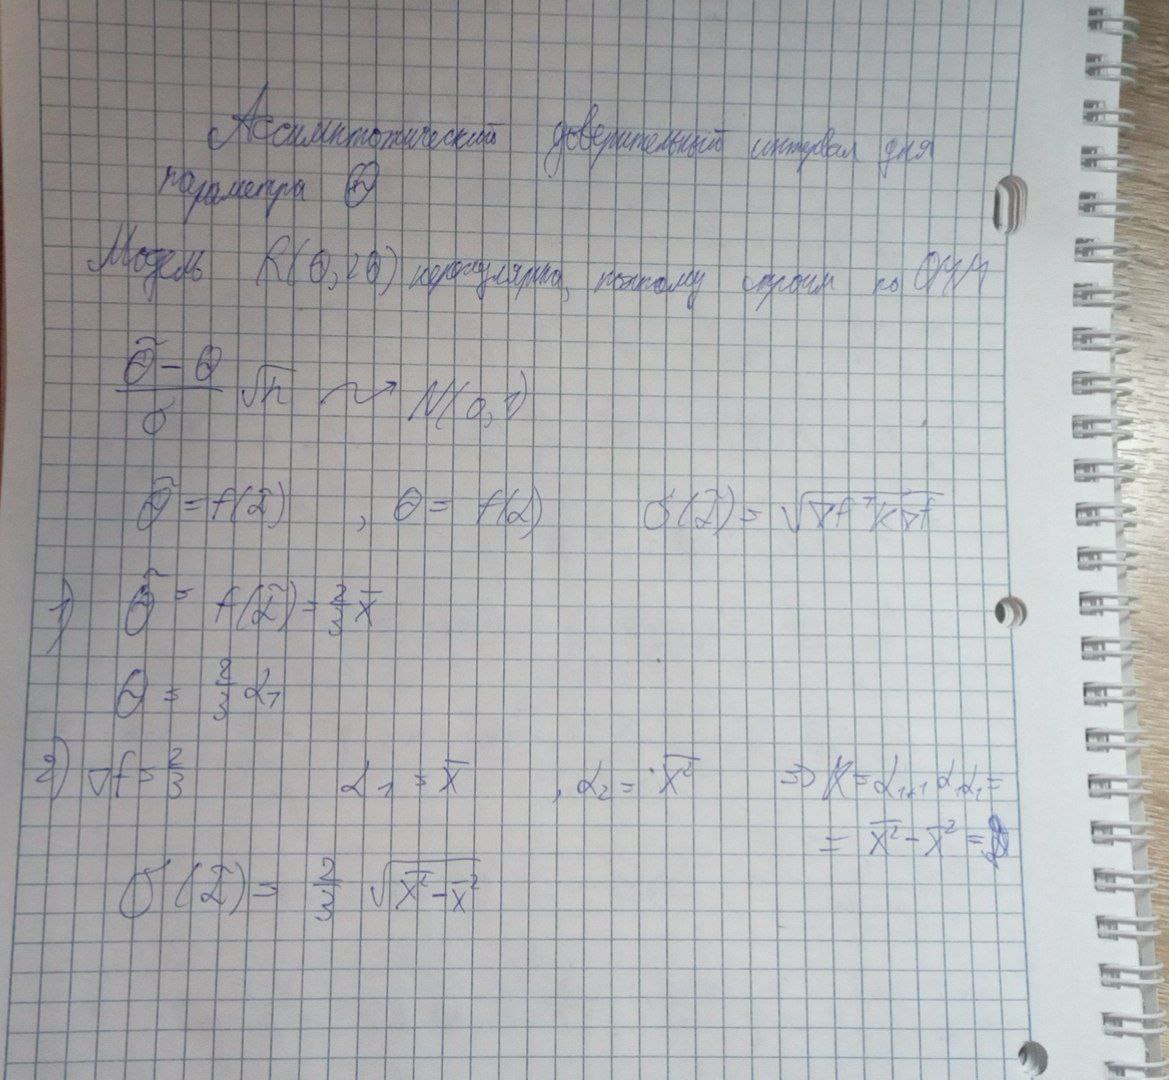 Ассимптотический доверительный интервал для
параметра θ
Модель R(θ, 2θ) нерегулярна, поэтому строим по ОММ
(θ̃ − θ)/σ √n ⇝ N(0,1)
θ̃ = f(α̃) , θ = f(α) σ(α̃) = √(∇f^T K ∇f)
1) θ̃ = f(α̃) = 2/3 x̄
θ = 2/3 α₁
2) ∇f = 2/3 α₁ = x̄ , α₂ = \overline{x²} ⇒ K = α₁₊₁ α₁α₁ =
= \overline{x²} − x̄² =
σ(α̃) = 2/3 √(\overline{x²} − x̄²)